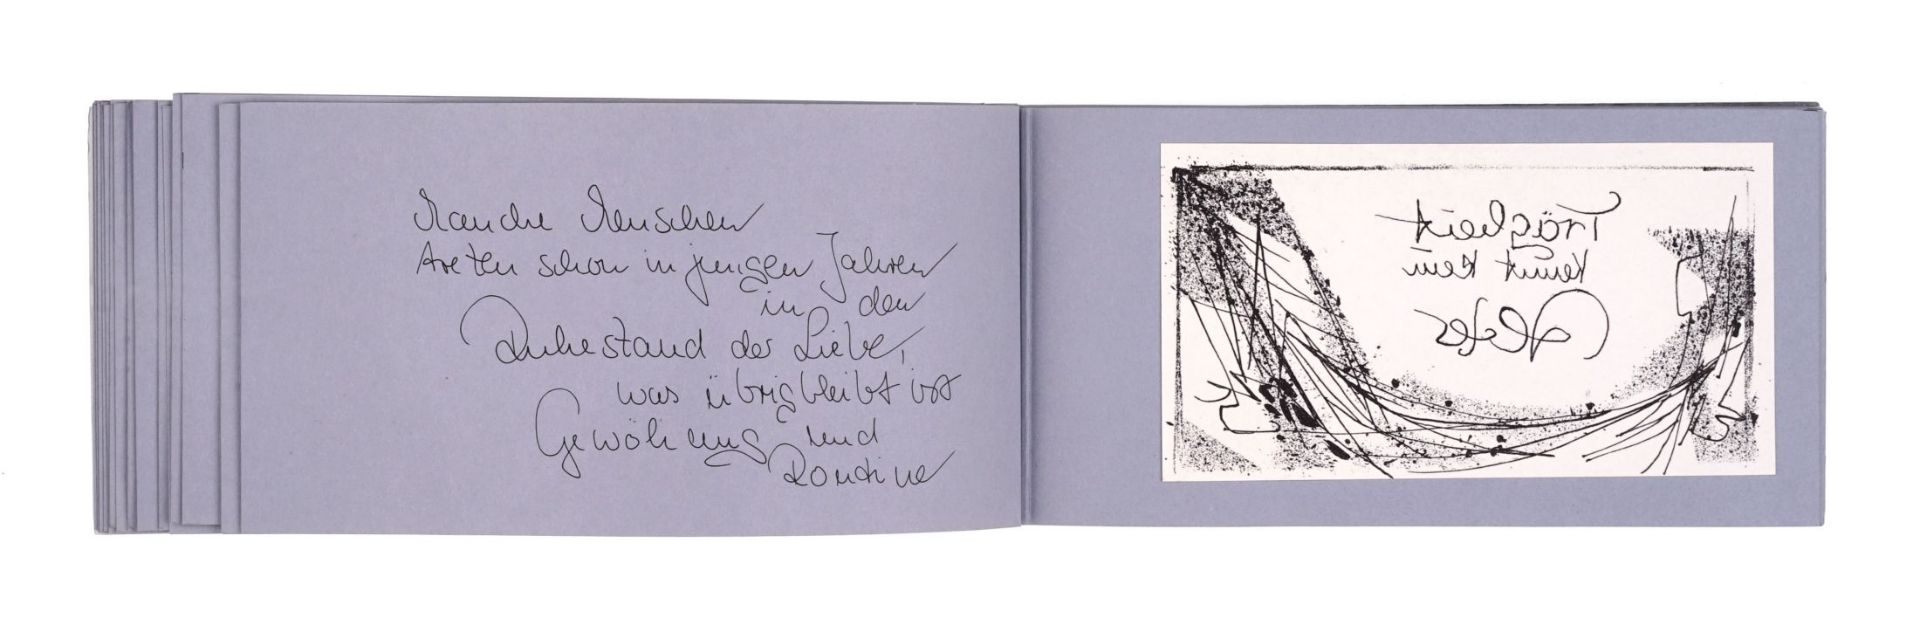 Manche Menschen
treten schon in jungen Jahren
in den
Ruhestand der Liebe,
was übrigbleibt ist
Gewöhnung und
Routine
Trägheit
kennt kein
Alter